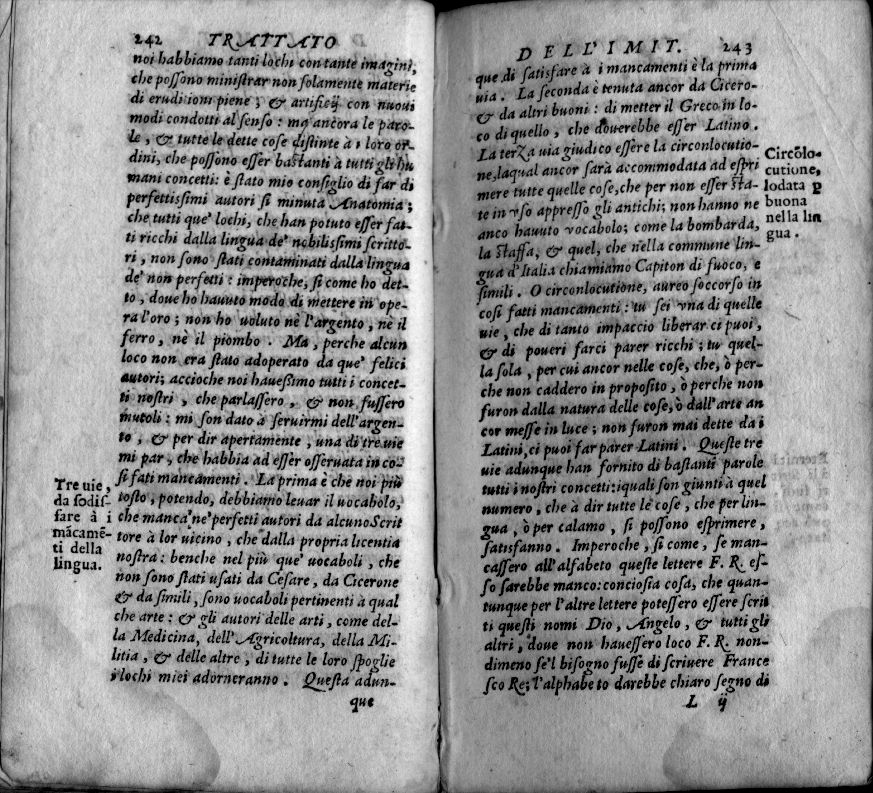 242 TRATTATO
noi habbiamo tanti lochi con tante imagini,
che possono ministrar non solamente materie
di eruditioni piene ; & artificij con nuoui
modi condotti al senso : ma ancora le paro-
le , & tutte le dette cose distinte à i loro or-
dini, che possono esser bastanti à tutti gli hu
mani concetti: è stato mio consiglio di far di
perfettissimi autori si minuta Anatomia ;
che tutti que' lochi, che han potuto esser fat-
ti ricchi dalla lingua de' nobilissimi scritto-
ri , non sono stati contaminati dalla lingua
de' non perfetti : imperoche, si come ho det-
to , doue ho hauuto modo di mettere in ope-
ra l'oro ; non ho uoluto nè l'argento , nè il
ferro , nè il piombo . Ma , perche alcun
loco non era stato adoperato da que' felici
autori; accioche noi hauessimo tutti i concet-
ti nostri , che parlassero , & non fussero
mutoli : mi son dato à seruirmi dell'argen-
to , & per dir apertamente , una di tre uie
mi par , che habbia ad esser osseruata in co-
si fati mancamenti . La prima è che noi più
tosto, potendo, debbiamo leuar il uocabolo,
che manca ne' perfetti autori da alcuno Scrit
tore à lor uicino , che dalla propria licentia
nostra : benche nel più que' uocaboli , che
non sono stati usati da Cesare , da Cicerone
& da simili , sono uocaboli pertinenti à qual
che arte : & gli autori delle arti , come del-
la Medicina, dell' Agricoltura, della Mi-
litia , & delle altre , di tutte le loro spoglie
i lochi miei adorneranno . Questa adun-
que
Tre uie,
da sodis-
fare à i
mãcamẽ-
ti della
lingua.
DELL'IMIT. 243
que di satisfare à i mancamenti è la prima
uia . La seconda è tenuta ancor da Cicero-
& da altri buoni : di metter il Greco in lo-
co di quello , che douerebbe esser Latino .
La terza uia giudico essere la circonlocutio-
ne, laqual ancor sarà accommodata ad espri
mere tutte quelle cose, che per non esser sta-
te in vso appresso gli antichi; non hanno ne
anco hauuto vocabolo; come la bombarda,
la staffa, & quel, che nella commune lin-
gua d'Italia chiamiamo Capiton di fuoco, e
simili . O circonlocutione, aureo soccorso in
cosi fatti mancamenti : tu sei vna di quelle
uie , che di tanto impaccio liberar ci puoi,
& di poueri farci parer ricchi ; tu quel-
la sola , per cui ancor nelle cose, che, ò per-
che non caddero in proposito , ò perche non
furon dalla natura delle cose, ò dall'arte an
cor messe in luce ; non furon mai dette da i
Latini, ci puoi far parer Latini . Queste tre
uie adunque han fornito di bastanti parole
tutti i nostri concetti: iquali son giunti à quel
numero , che à dir tutte le cose , che per lin-
gua , ò per calamo , si possono esprimere ,
satisfanno . Imperoche , si come , se man-
cassero all'alfabeto queste lettere F. R. es-
so sarebbe manco: conciosia cosa, che quan-
tunque per l'altre lettere potessero essere scrit
ti questi nomi Dio , Angelo , & tutti gli
altri , doue non hauessero loco F. R. non-
dimeno se'l bisogno fusse di scriuere France
sco Re; l'alphabeto darebbe chiaro segno di
L ij
Circõlo-
cutione,
lodata ꝑ
buona
nella lin
gua .